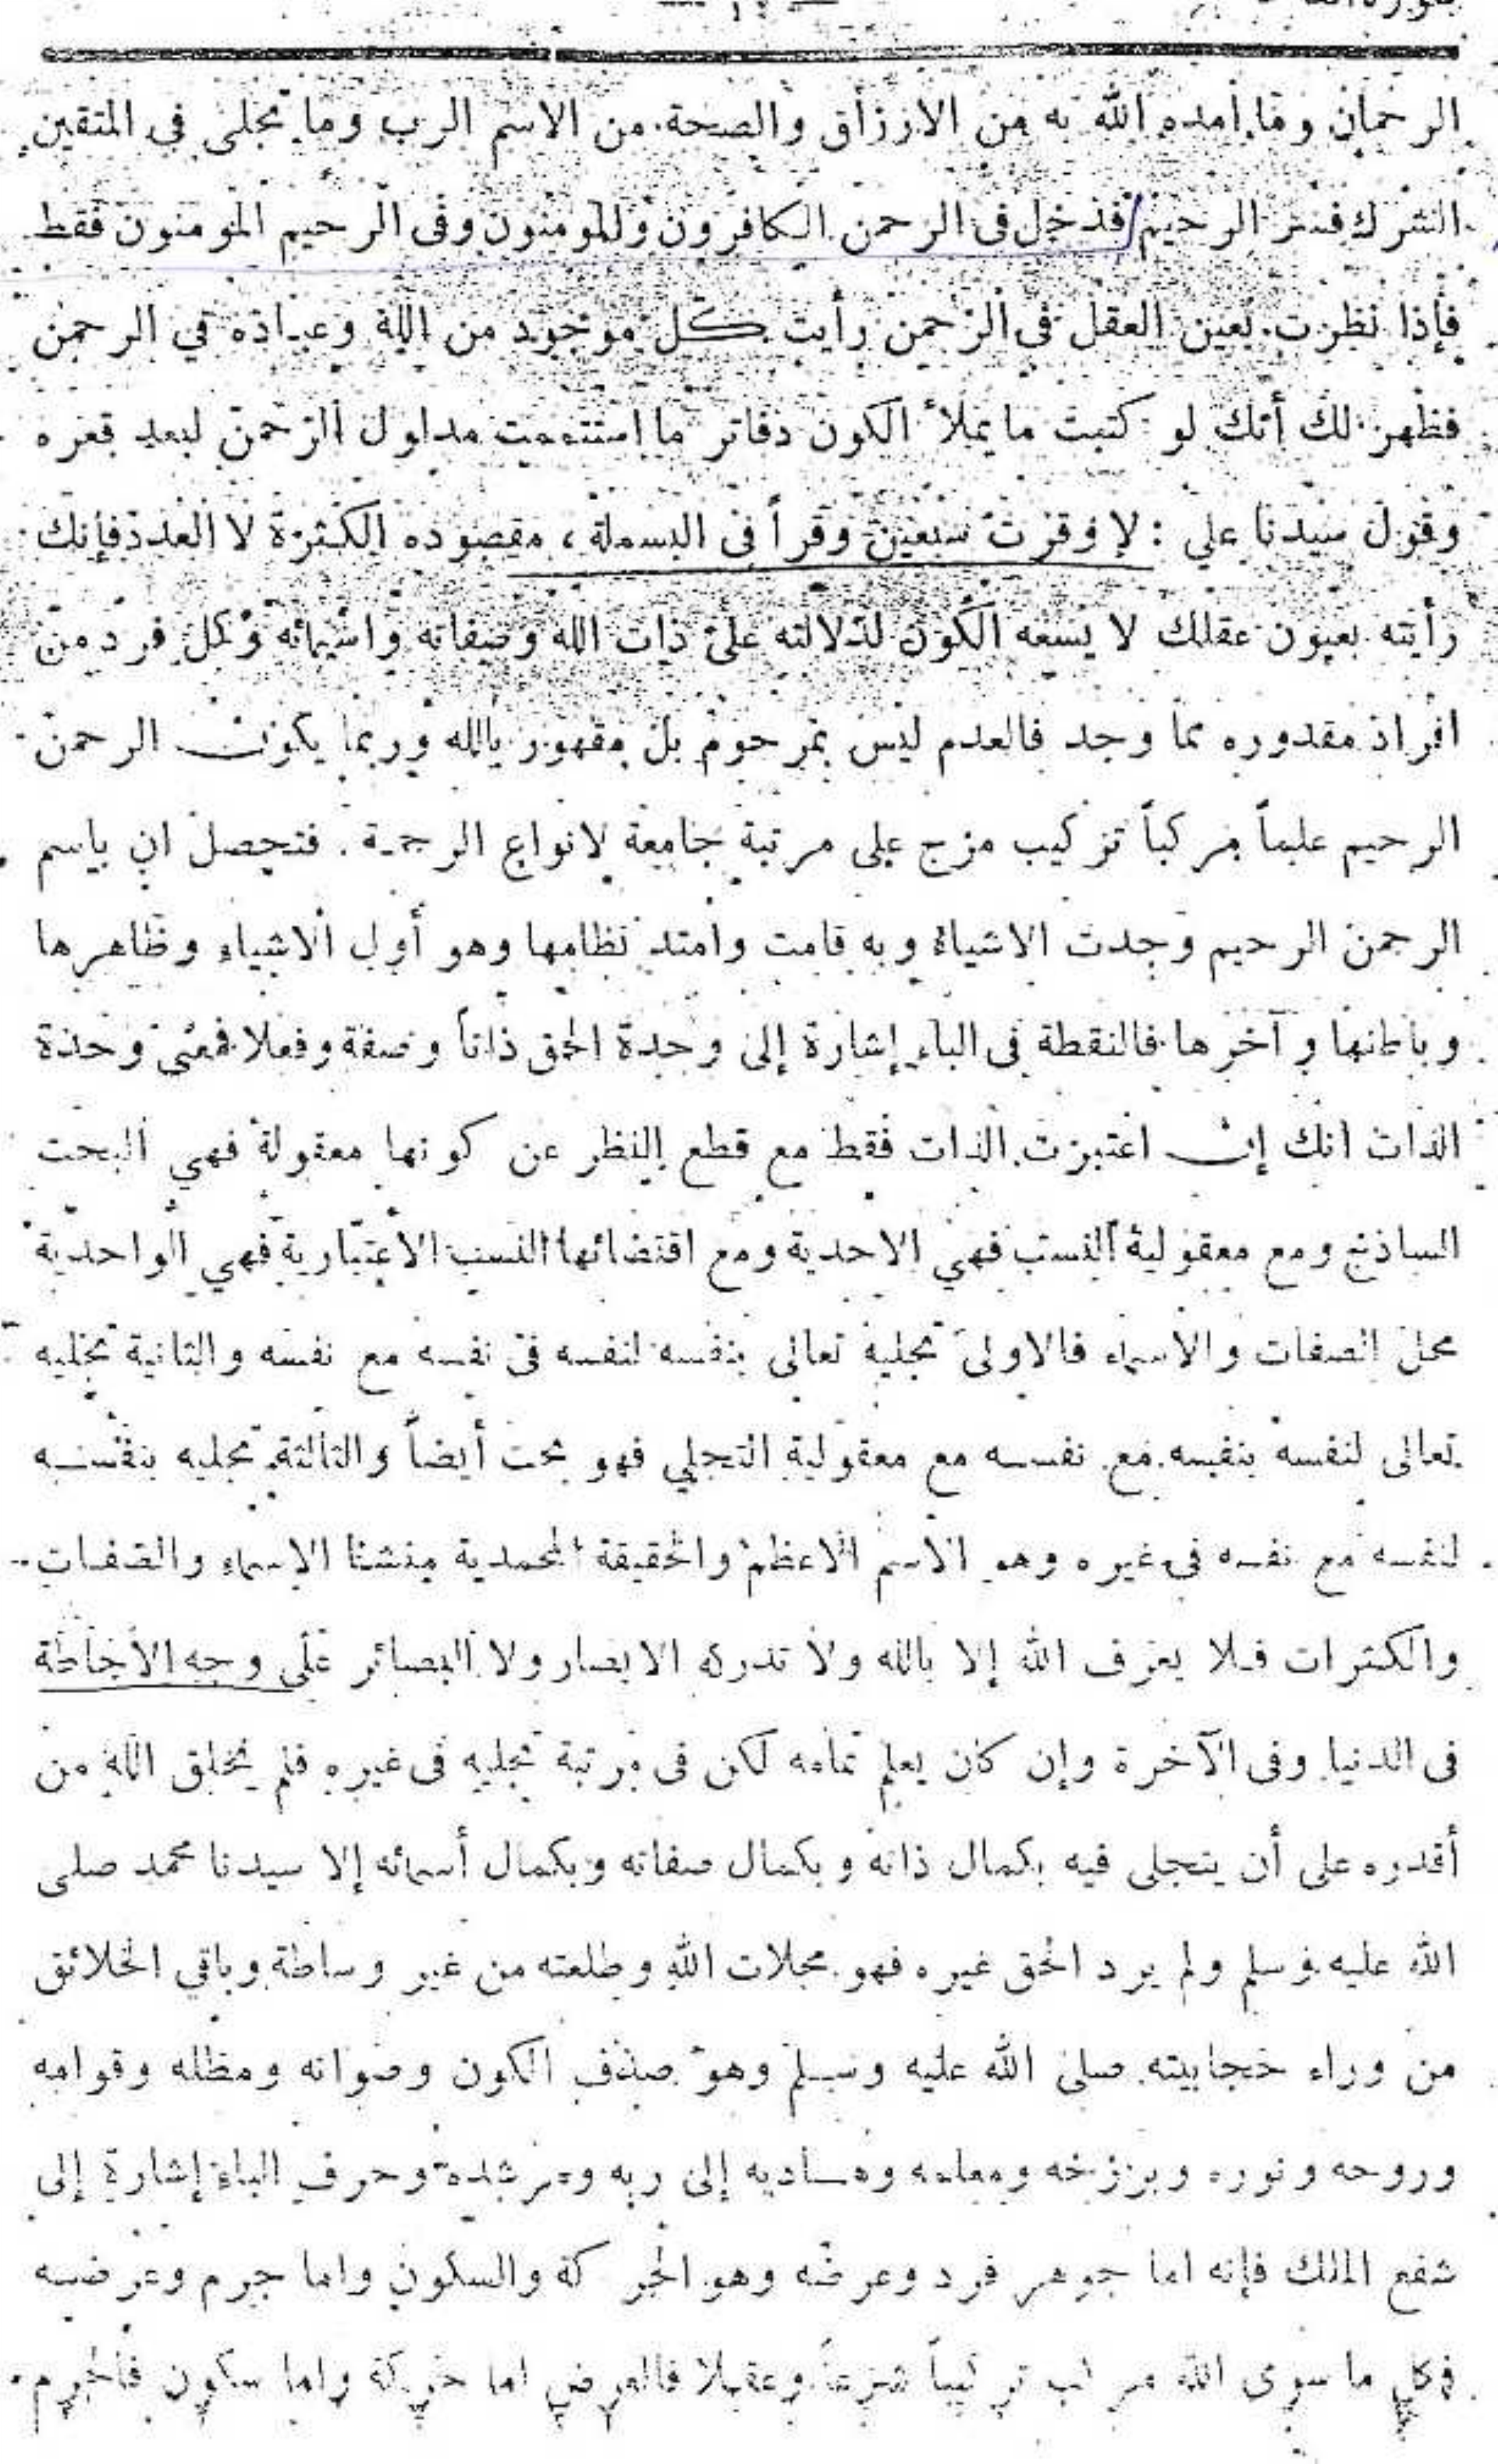 الرحمان وما أمده الله به من الارزاق والصحة من الاسم الرب وما تجلى في المتقين
الشرك فسر الرحيم فدخل فى الرحمن الكافرون والمومنون وفى الرحيم المومنون فقط
فإذا نظرت بعين العقل فى الرحمن رأيت كل موجود من الله وعباده في الرحمن
فظهر لك أنك لو كتبت ما يملأ الكون دفاتر ما استتممت مدلول الرحمن لبعد قعره
وقول سيدنا علي : لاوقرت سبعين وقراً فى البسملة ، مقصوده الكثرة لا العدد فإنك
رأيته بعيون عقلك لا يسعه الكون لدلالته على ذات الله وصفاته واسمائه وكل فرد من
افراد مقدوره مما وجد فالعدم ليس بمرحوم بل مقهور بالله وربما يكون الرحمن
الرحيم علماً مركباً تركيب مزج على مرتبة جامعة لانواع الرحمة . فتحصل ان باسم
الرحمن الرحيم وجدت الاشياء وبه قامت وامتد نظامها وهو أول الاشياء وظاهرها
وباطنها وآخرها فالنقطة فى الباء إشارة إلى وحدة الحق ذاتاً وصفة وفعلا فمعنى وحدة
الذات انك إن اعتبرت الذات فقط مع قطع النظر عن كونها معقولة فهي البحت
الساذج ومع معقولية النسب فهي الاحدية ومع اقتضائها النسب الاعتبارية فهي الواحدية
محل الصفات والاسماء فالاولى تجليه تعالى بنفسه لنفسه فى نفسه مع نفسه والثانية تجليه
تعالى لنفسه بنفسه مع نفسه مع معقولية التجلي فهو بحت أيضاً والثالثة تجليه بنفسه
لنفسه مع نفسه في غيره وهو الاسم الاعظم والحقيقة المحمدية منشئا الاسماء والصفات
والكثرات فلا يعرف الله إلا بالله ولا تدركه الابصار ولا البصائر على وجه الاحاطة
فى الدنيا وفى الآخرة وإن كان يعلم تمامه لكن فى مرتبة تجليه فى غيره فلم يخلق الله من
أقدره على أن يتجلى فيه بكمال ذاته وبكمال صفاته وبكمال أسمائه إلا سيدنا محمد صلى
الله عليه وسلم ولم يرد الحق غيره فهو مجلات الله وطلعته من غير وساطة وباقي الخلائق
من وراء حجابيته صلى الله عليه وسلم وهو صدف الكون وصوانه ومظله وقوامه
وروحه ونوره وبرزخه ومعلمه ومساديه إلى ربه ومرشده وحرف الباء إشارة إلى
شفع الملك فإنه اما جوهر فرد وعرضه وهو الحركة والسكون واما جرم وعرضه
فكل ما سوى الله مرتب ترتيباً شرعاً وعقلا فالعرض اما حركة واما سكون فالجرم